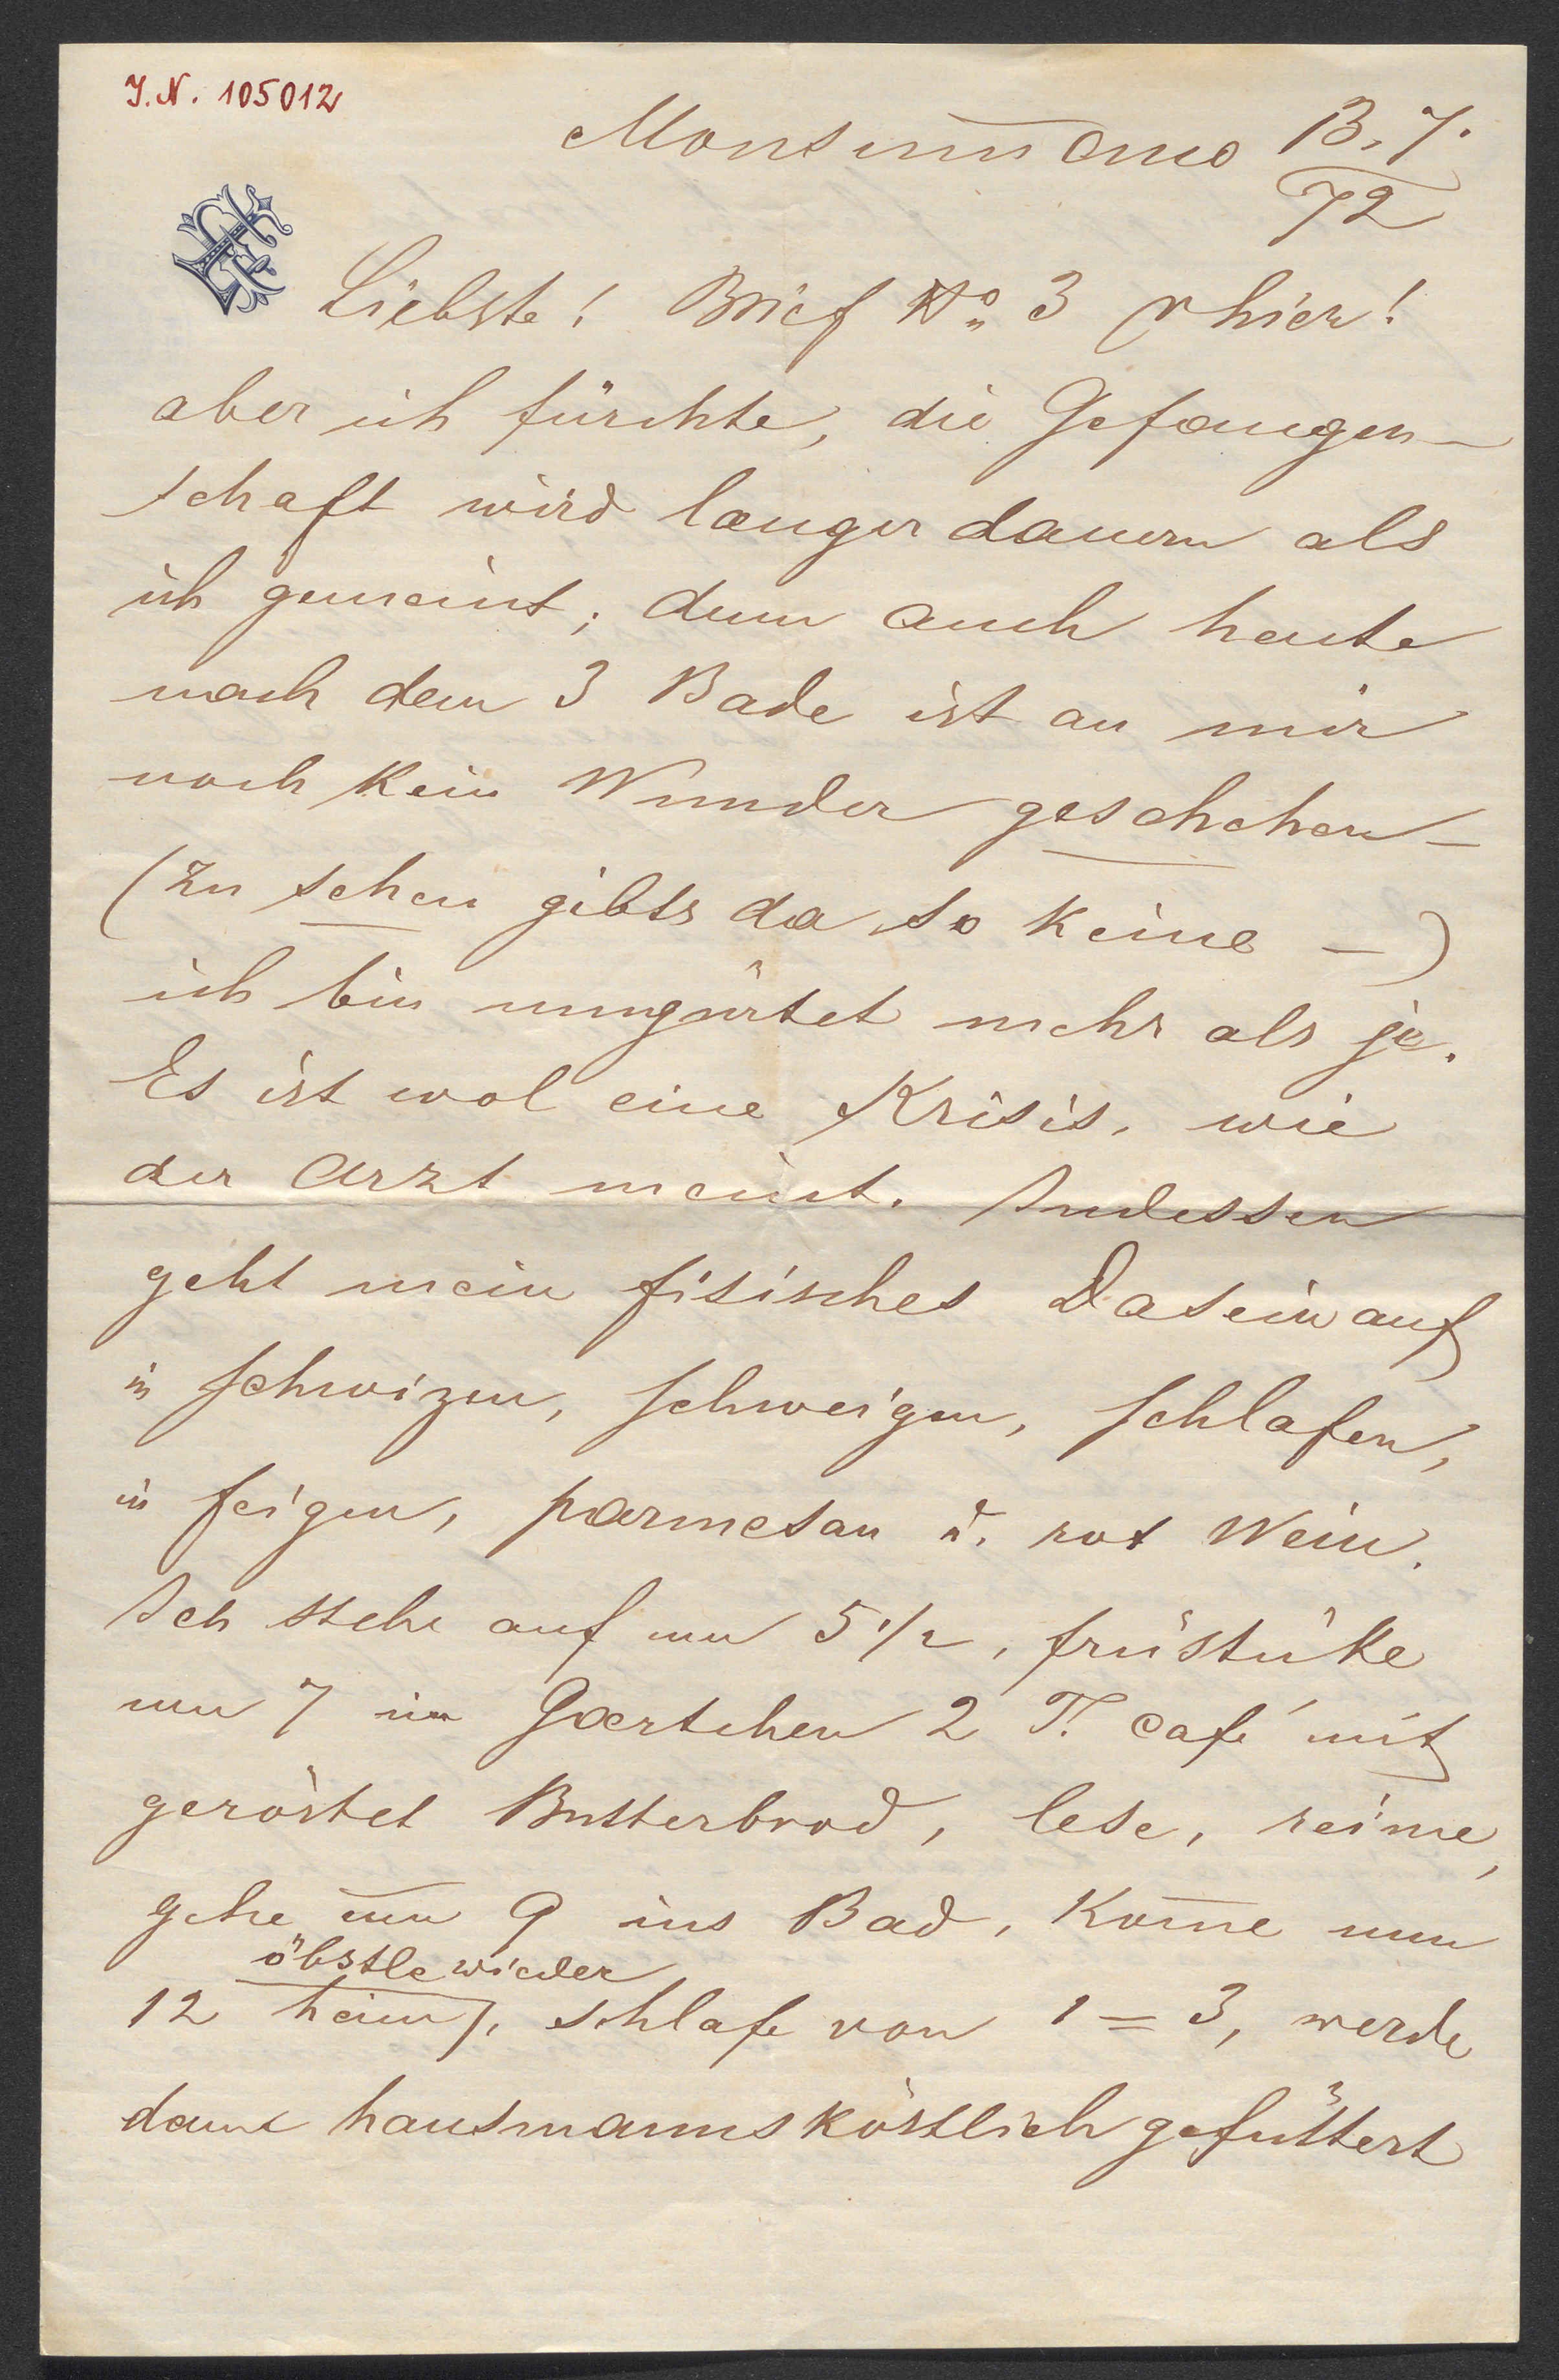 J.N. 105012
Monsum̅ano 13. 7.
72
Liebste! Brief No 3 v hier!
aber ich fürchte, die Gefangen-
schaft wird laenger dauern als
ich gemeint; denn auch heute
nach dem 3 Bade ist an mir
noch kein Wunder geschehen -
(zu sehen gibts da so keine -)
ich bin umgürtet mehr als je.
Es ist wol eine Krisis, wie
der Arzt meint. Indessen
geht mein fisisches Dasein auf
in schwizen, schweigen, schlafen,
in feigen, parmesan u. rot Wein.
Ich stehe auf um 5 1/2, früstüke
um 7 im Gaertchen 2 T. café mit
geröstet Butterbrod, lese, reime,
gehe um 9 ins Bad, kom̅e um
öbstle wieder
12 heim, schlafe von 1 = 3, werde
dann hausmannsköstlich gefüttert